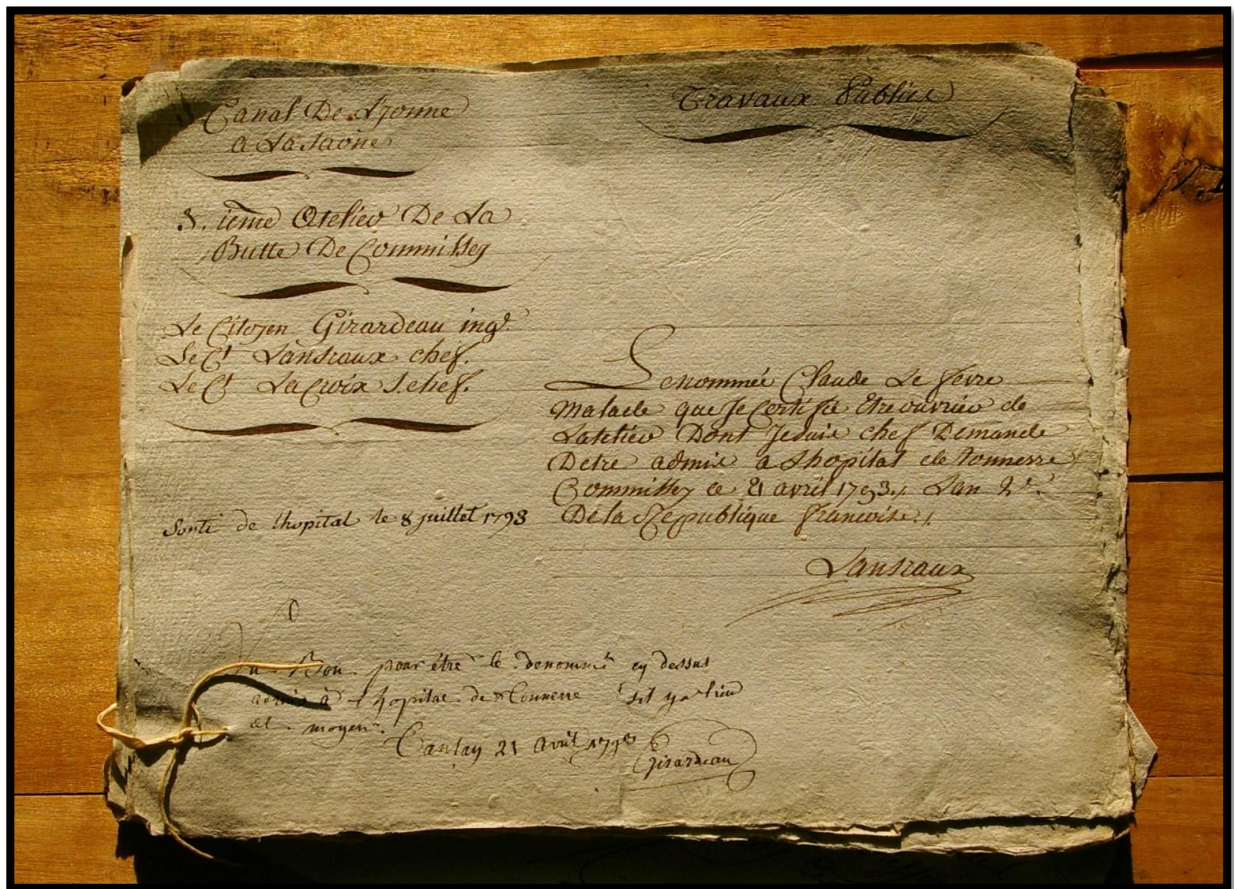 Canal De Lyonne
a La Saone
Travaux Publics
3.ieme Atelier De La
Butte De Commissey
Le Citoyen Girardeau ingr.
Le Ct Lansraux chef.
Le Ct La Croix S.chef.
Le nommée Claude Le fevre
Malade que Je Certifie Etre ouvrier de
Latelier Dont Je suis chef Demande
Detre admis a Lhopital de tonnerre
Commissey ce 21 avril 1793 ./. Lan 2e.
De la Republique francoise ./.
Lansraux
Sorti de lhopital le 8 juillet 1793
Vu Bon pour être le dénommé cy dessus
admis à l'hopital de Tonnerre s'il y a lieu
et moyen.
Tanlay 21 avril 1793
Girardeau